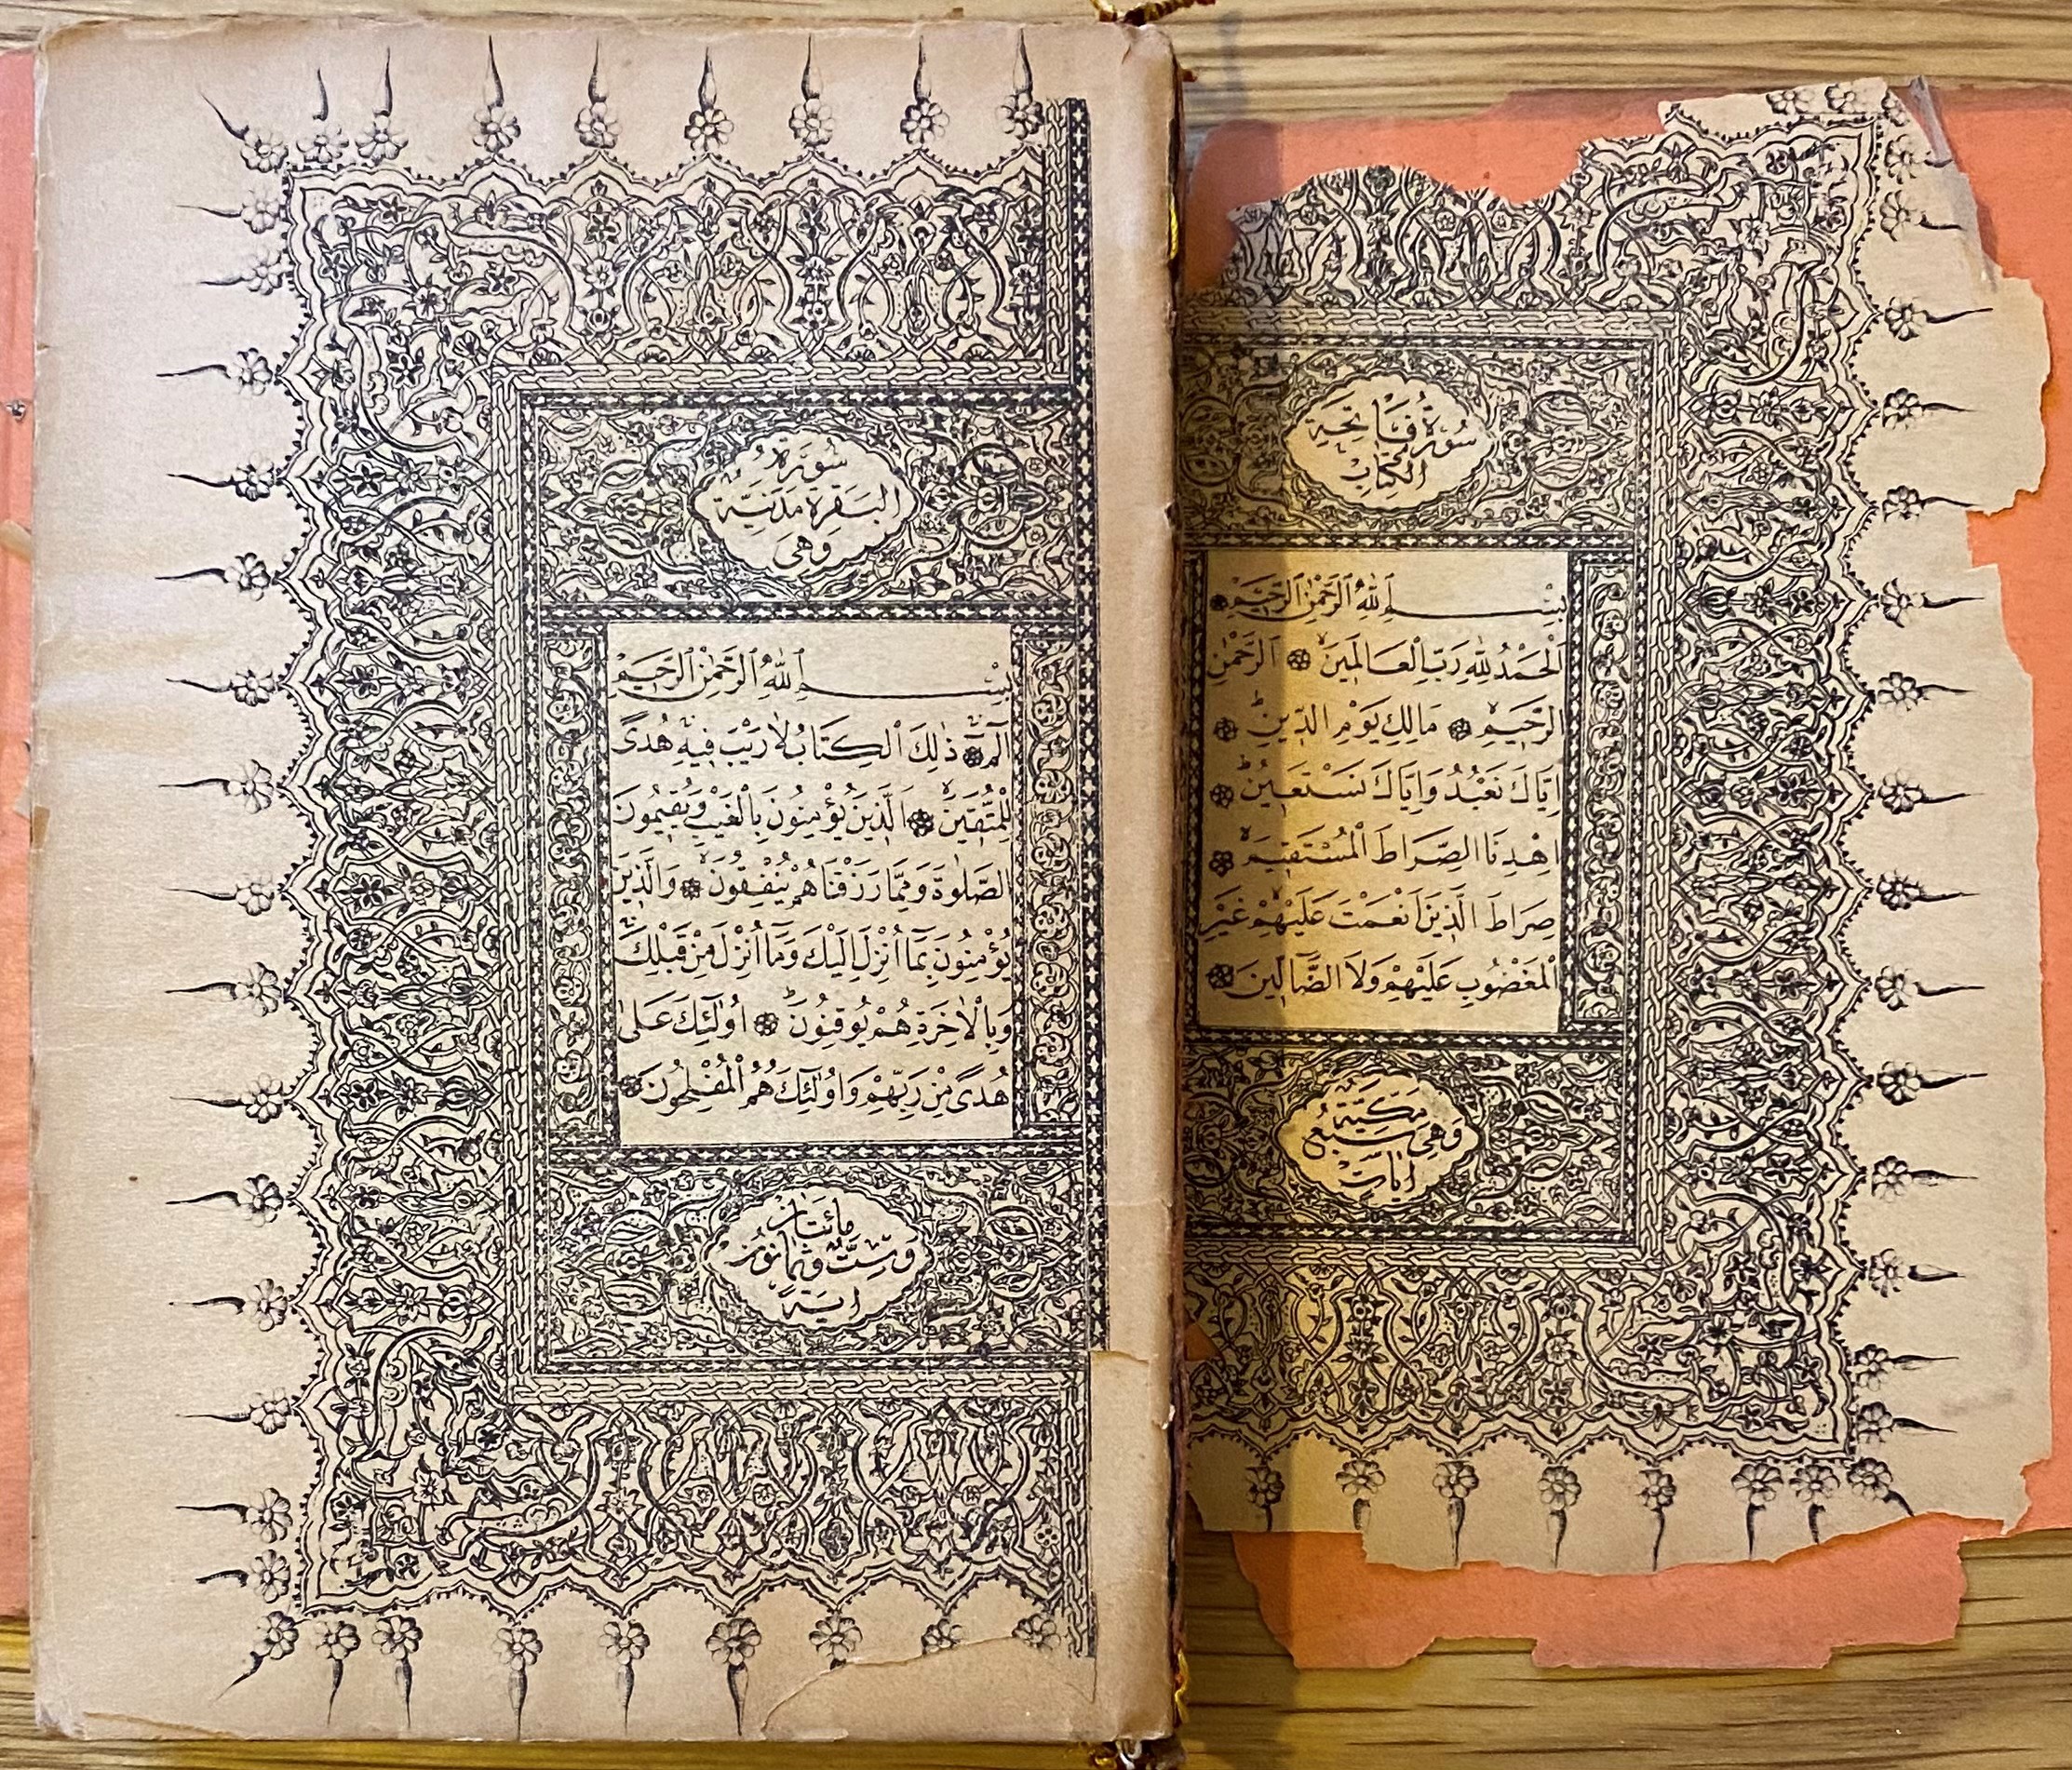 سُورَةُ فَاتِحَةِ
الْكِتَابِ
بِسْمِ اللّٰهِ الرَّحْمٰنِ الرَّحِيمِ
اَلْحَمْدُ لِلّٰهِ رَبِّ الْعَالَمِينَ ۙ الرَّحْمٰنِ
الرَّحِيمِ ۙ مَالِكِ يَوْمِ الدِّينِ ۜ
اِيَّاكَ نَعْبُدُ وَاِيَّاكَ نَسْتَعِينُ ۜ
اِهْدِنَا الصِّرَاطَ الْمُسْتَقِيمَ ۙ
صِرَاطَ الَّذِينَ اَنْعَمْتَ عَلَيْهِمْ غَيْرِ
الْمَغْضُوبِ عَلَيْهِمْ وَلَا الضَّالِّينَ
مَكِّيَّةٌ
وَهِيَ سَبْعُ
اٰيَاتٍ
سُورَةُ
الْبَقَرَةِ مَدَنِيَّةٌ
وَهِيَ
بِسْمِ اللّٰهِ الرَّحْمٰنِ الرَّحِيمِ
الٓمٓ ۚ ذٰلِكَ الْكِتَابُ لَا رَيْبَ فِيهِ هُدًى
لِلْمُتَّقِينَ ۙ اَلَّذِينَ يُؤْمِنُونَ بِالْغَيْبِ وَيُقِيمُونَ
الصَّلٰوةَ وَمِمَّا رَزَقْنَاهُمْ يُنْفِقُونَ ۙ وَالَّذِينَ
يُؤْمِنُونَ بِمَٓا اُنْزِلَ اِلَيْكَ وَمَٓا اُنْزِلَ مِنْ قَبْلِكَ ۚ
وَبِالْاٰخِرَةِ هُمْ يُوقِنُونَ ۜ اُولٰٓئِكَ عَلٰى
هُدًى مِنْ رَبِّهِمْ وَاُولٰٓئِكَ هُمُ الْمُفْلِحُونَ
مِائَتَانِ
وَسِتٌّ وَثَمَانُونَ
اٰيَةً